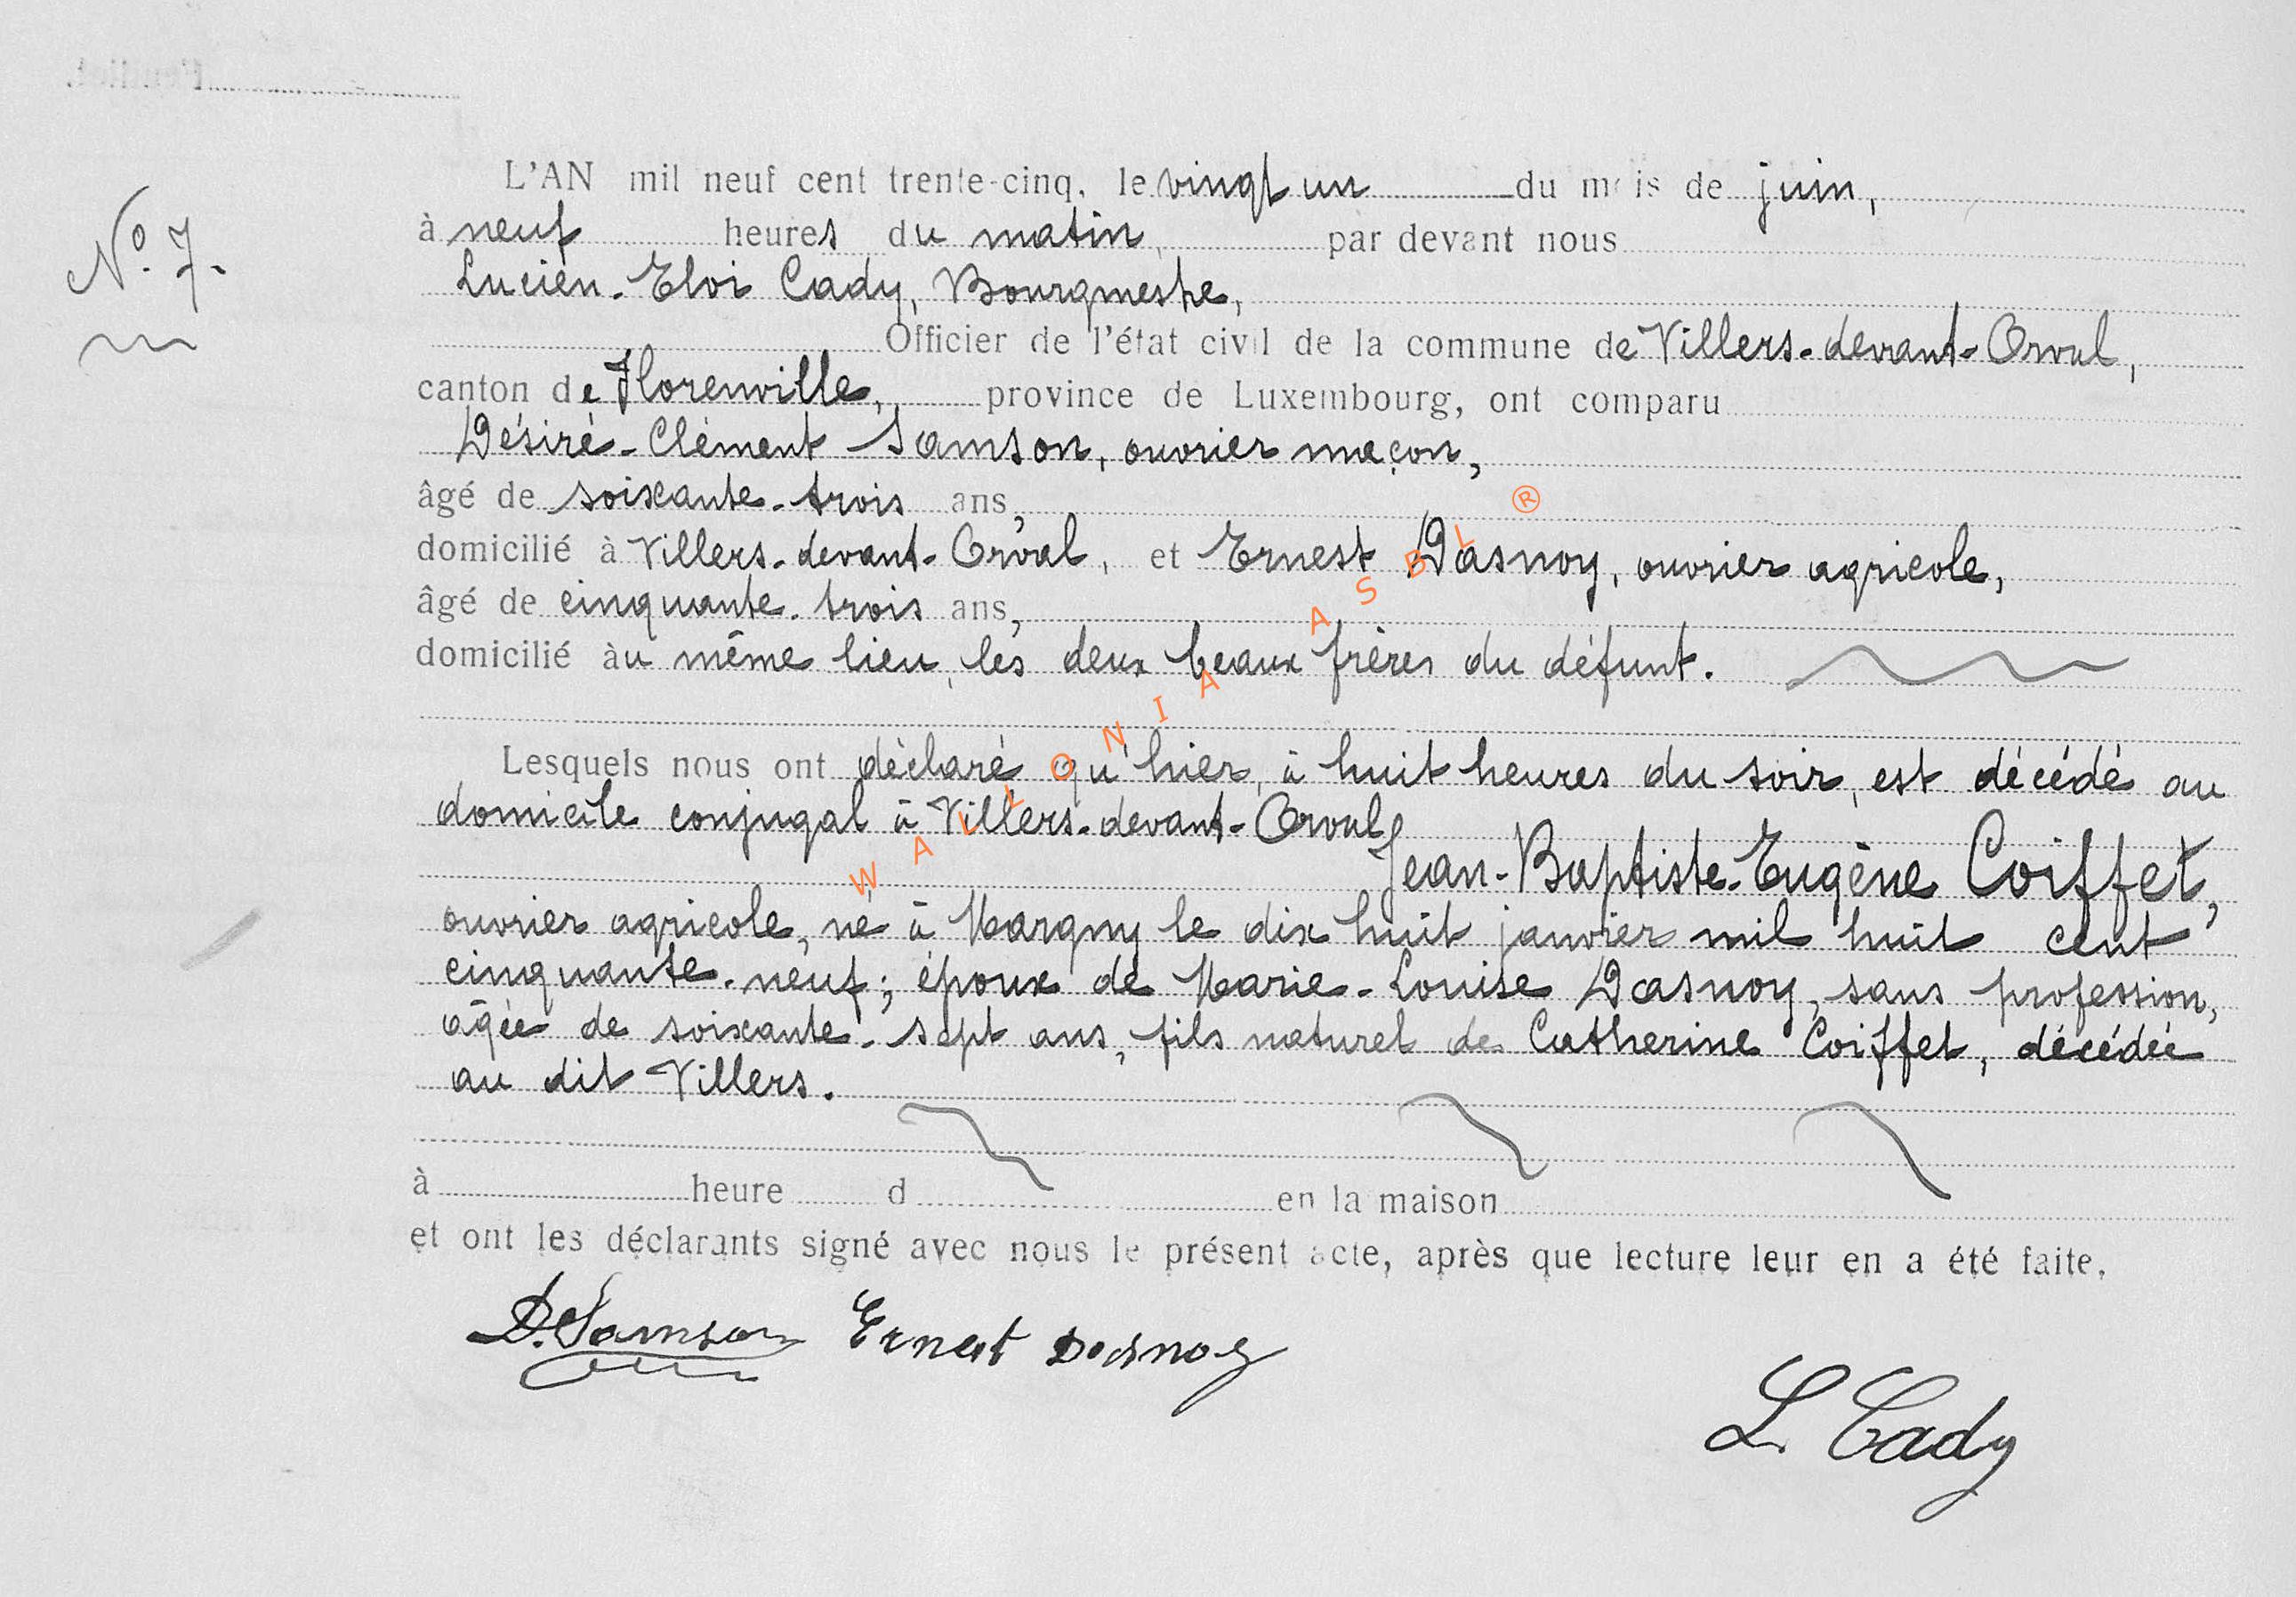 Feuillet.
L'AN mil neuf cent trente-cinq, le vingt un du mois de juin,
N° 7.
à neuf heures du matin, par devant nous
Lucien-Eloi Cady, Bourgmestre,
Officier de l'état civil de la commune de Villers-devant-Orval,
canton de Florenville, province de Luxembourg, ont comparu
Désiré-Clément Samson, ouvrier maçon,
âgé de soixante-trois ans,
domicilié à Villers-devant-Orval, et Ernest Dasnoy, ouvrier agricole,
âgé de cinquante-trois ans,
domicilié àu même lieu, les deux beaux frères du défunt.
Lesquels nous ont déclaré qu'hier, à huit heures du soir, est décédé au
domicile conjugal à Villers-devant-Orval
Jean-Baptiste-Eugène Coiffet,
ouvrier agricole, né à Margny le dix huit janvier mil huit cent
cinquante-neuf; époux de Marie-Louise Dasnoy, sans profession,
agée de soixante-sept ans, fils naturel de Catherine Coiffet, décédée
au dit Villers.
à heure d en la maison
et ont les déclarants signé avec nous le présent acte, après que lecture leur en a été faite.
D. Samson Ernest Dasnoy
L. Cady
WALLONIA ASBL ®